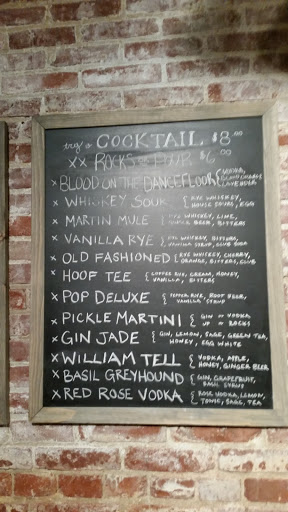 try a COCKTAIL $8.00
XX ROCKS $6.00
x BLOOD ON THE DANCEFLOOR { VODKA, BLOOD ORANGE, LAVENDER
x WHISKEY SOUR { RYE WHISKEY, HOUSE SOURS, EGG
x MARTIN MULE { RYE WHISKEY, LIME, GINGER BEER, BITTERS
x VANILLA RYE { RYE WHISKEY, BITTERS, VANILLA SYRUP, CLUB SODA
x OLD FASHIONED { RYE WHISKEY, CHERRY, ORANGE, BITTERS, CLUB
x HOOF TEE { COFFEE RYE, CREAM, HONEY, VANILLA, BITTERS
x POP DELUXE { PEPPER RYE, ROOT BEER, VANILLA SYRUP
x PICKLE MARTINI { GIN or VODKA UP or ROCKS
x GIN JADE { GIN, LEMON, SAGE, GREEN TEA, HONEY, EGG WHITE
x WILLIAM TELL { VODKA, APPLE, HONEY, GINGER BEER
x BASIL GREYHOUND { GIN, GRAPEFRUIT, BASIL SYRUP
x RED ROSE VODKA { ROSE VODKA, LEMON, TONIC, SAGE, TEA